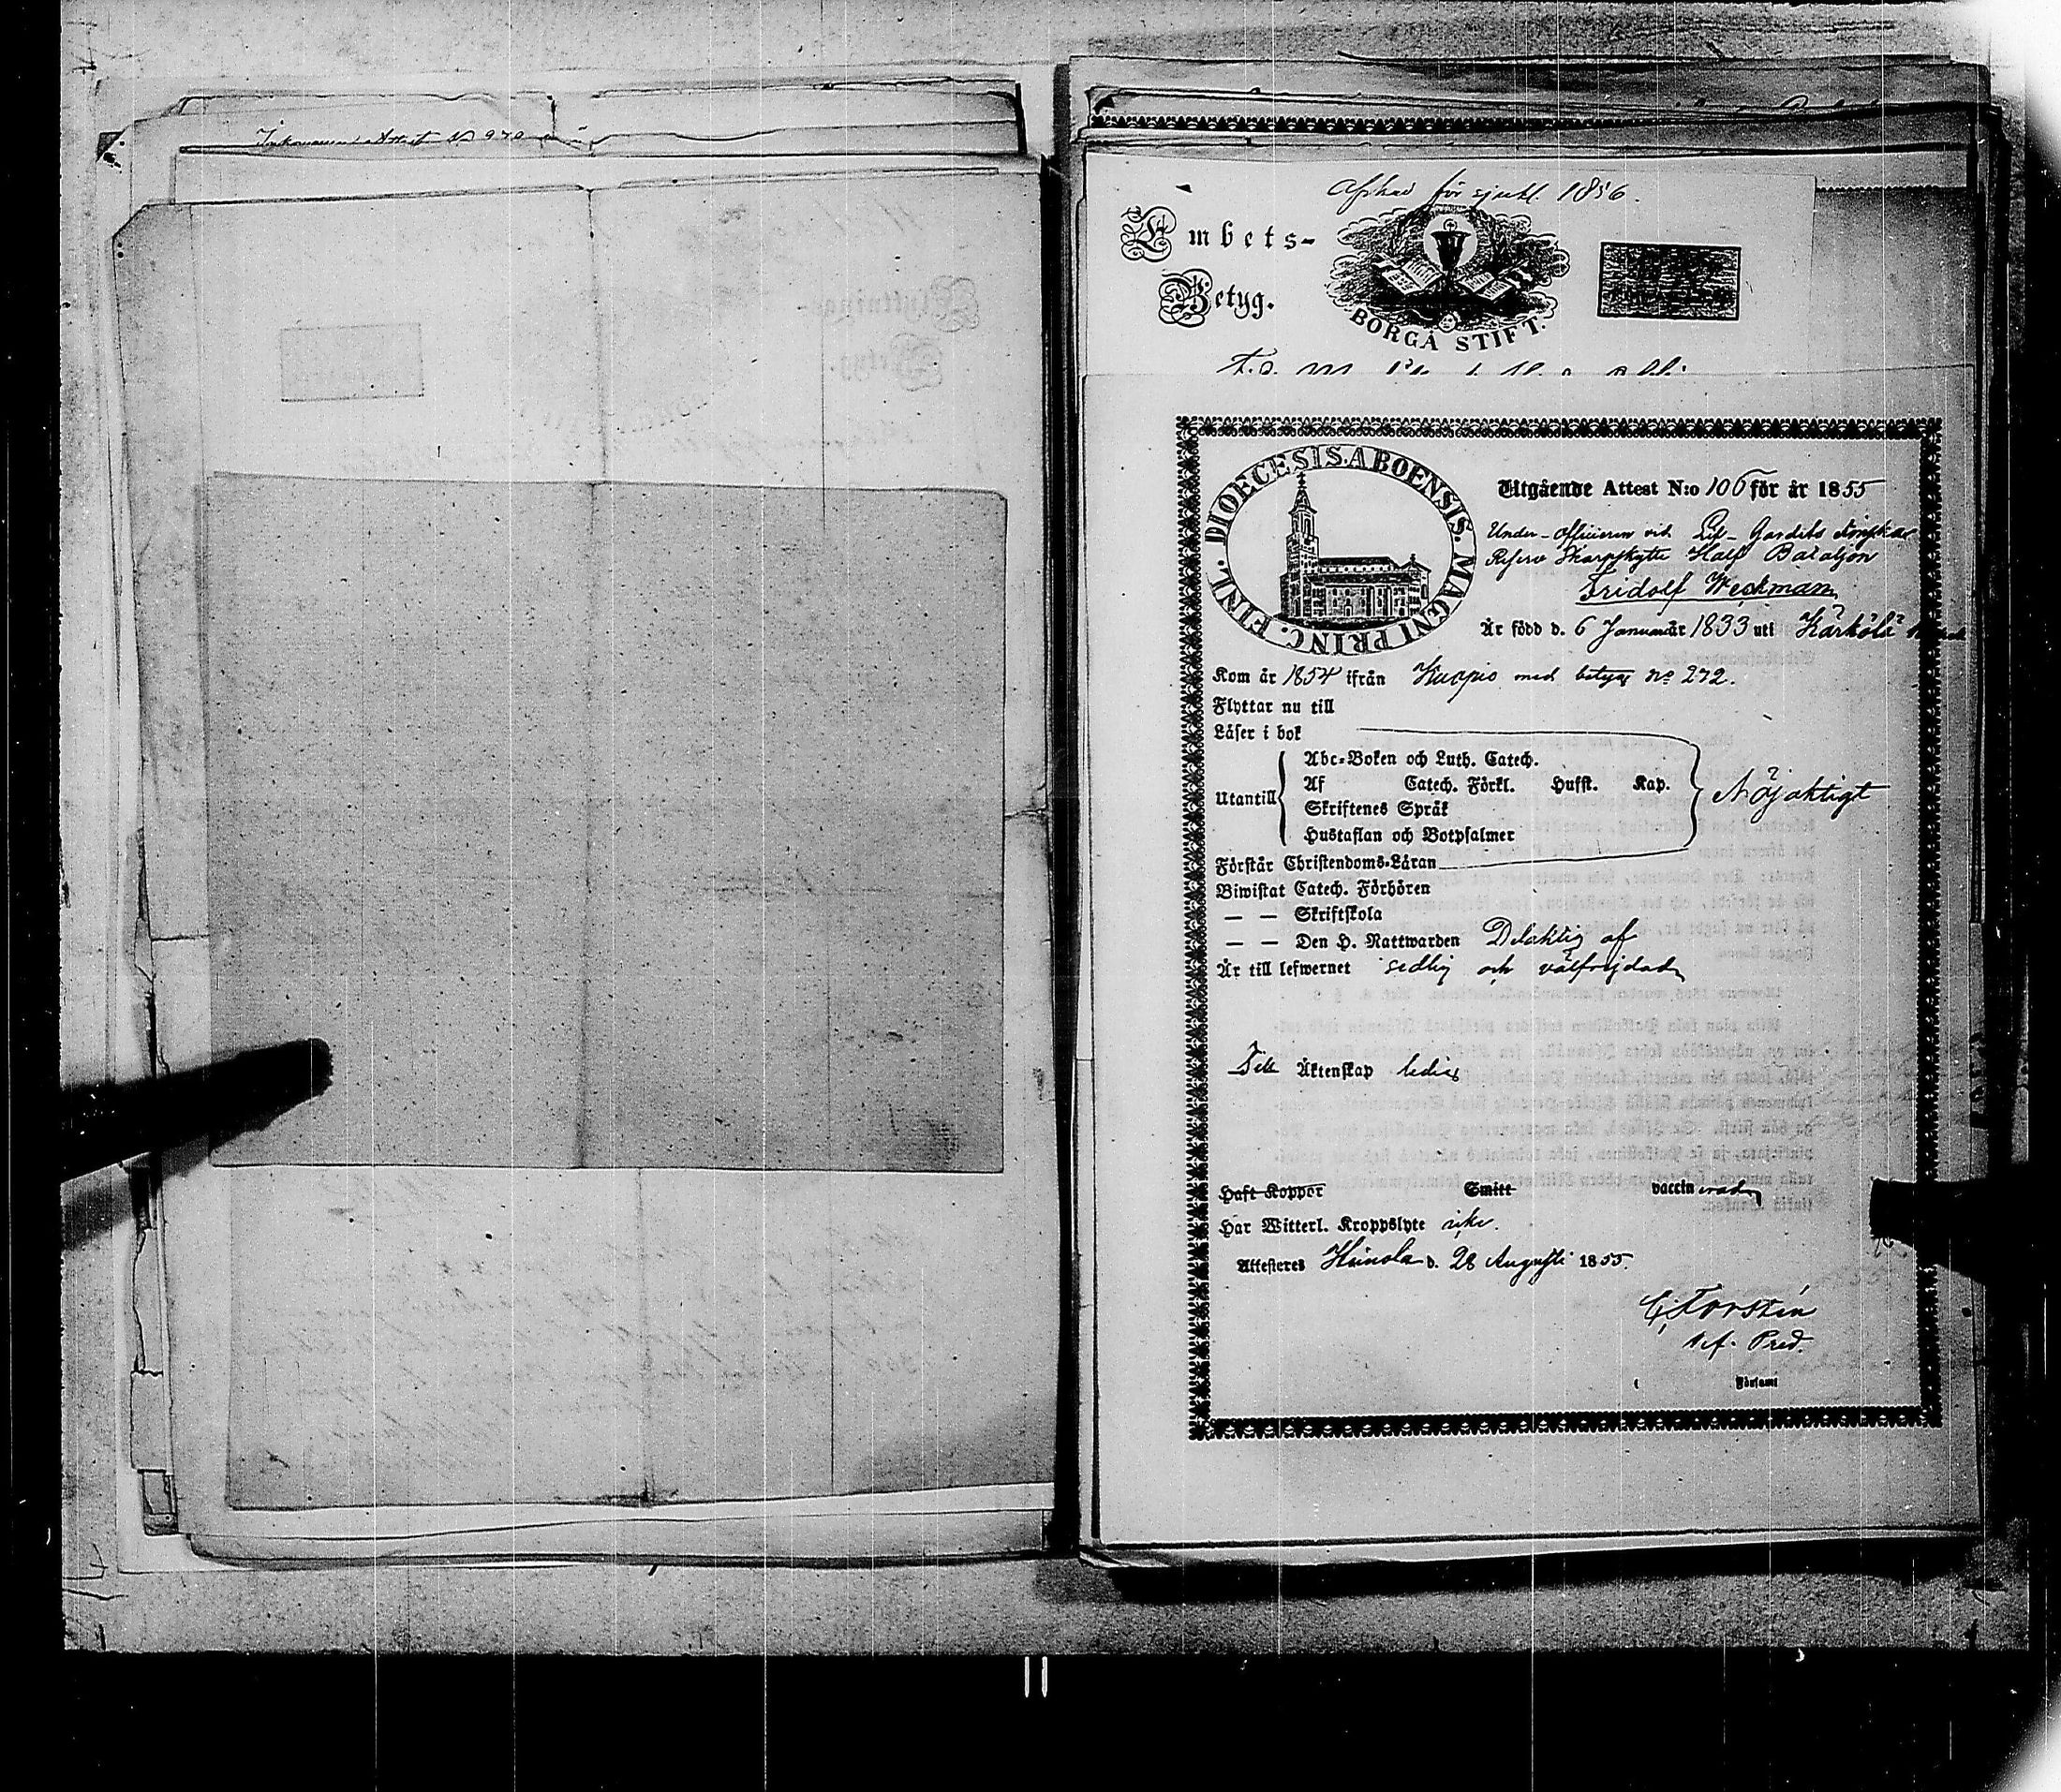 Inkommand Attest No 970
för sjukl. 1856.
Embets-
Betyg.
BORGÅ STIFT.
DIOECESIS. ABOENSIS. MAGNI PRINC. FINL.
Utgående Attest N:o 106 för år 1855
Under-officeren vid Lif-Gardets Finska
Reserv Skarpskytte Half Bataljon
Fridolf Weckman
År född d. 6 Januari år 1833 uti Kärkölä
Kom år 1854 ifrån Kuopio med betyg No 272.
Flyttar nu till
Läser i bok
Utantill
Abc-Boken och Luth. Catech.
Af Catech. Förkl. Hufst. Kap.
Skriftenes Språk
Hustaflan och Botpsalmer
Nöjaktigt
Förstår Christendoms-Läran
Biwistat Catech. Förhören
— — Skriftskola
— — Den H. Nattwarden Delaktig af
Är till lefwernet sedlig och välfrejdad
Till Äktenskap ledig
Haft Koppor Smitt vaccinerad
Har Witterl. Kroppslyte icke.
Attesteres Heinola d. 28 Augusti 1855.
C. Forstén
v.f. Pred.
Församl